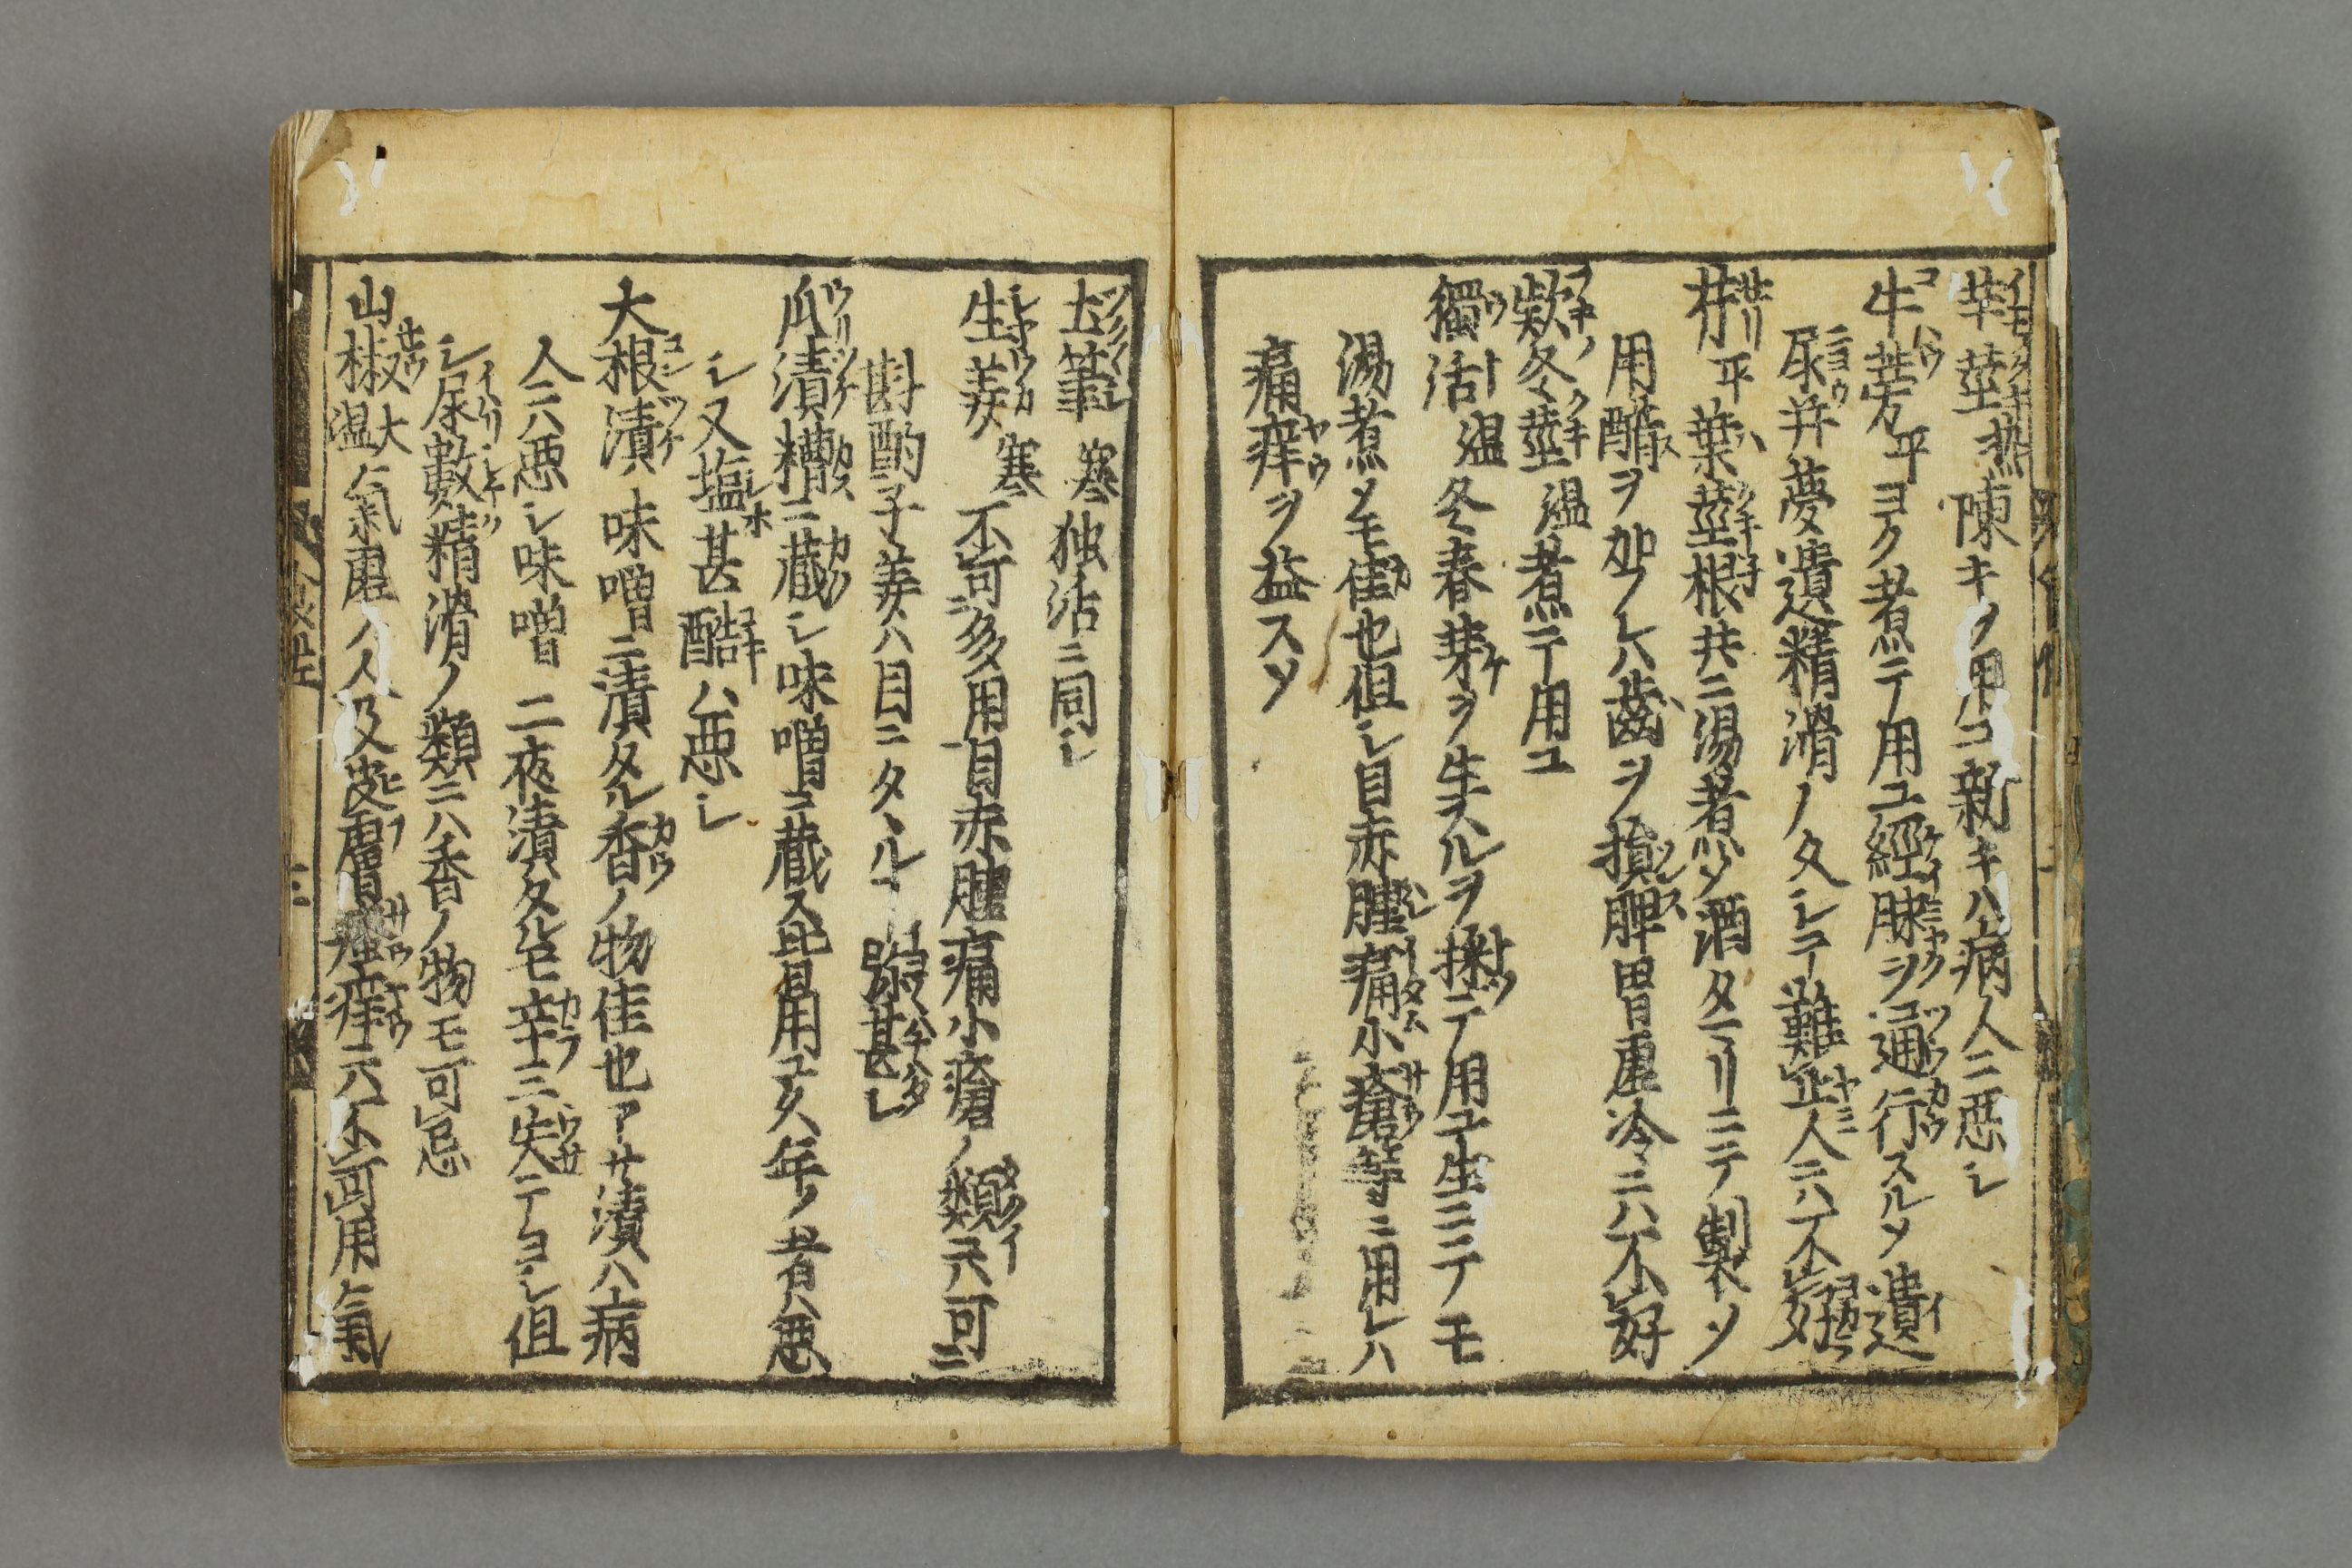 芋茎熱陳キヲ用ユ新キハ病人ニ悪シ
牛蒡平ヨク煮テ用ユ經脉ヲ通行スルソ遺
尿并夢遺精滑ノタシテ難止人ニハ不好
芹平葉茎根共ニ湯煮ソ酒タマリニテ製ソ
用醋ヲ加ノレハ齒ヲ損脾胃虚冷ニハ不好
欵冬茎温煮テ用ユ
獨活温冬春芽ヲ生スルヲ採テ用ユ生ニテモ
湯煮ソモ佳也但シ目赤腫痛小瘡等ニ用レハ
痛痒ヲ益スソ
土筆寒独活ニ同シ
生姜寒不可多用目赤腫痛小瘡ノ類ニハ可
斟酌子姜ハ目ニタヽル弥甚シ
瓜漬糟ニ蔵シ味噌ニ蔵ス皆用ユ久年ノ者ハ悪
シ又塩甚酷ハ悪シ
大根漬味噌ニ漬タル香ノ物佳也アサ漬ハ病
人ニハ悪シ味噌ニ夜漬タルモ辛三失テヨシ但
シ尿數精滑ノ類ニハ香ノ物モ可忌
山椒大温氣虚ノ人及皮膚瘙痒ニハ不可用氣